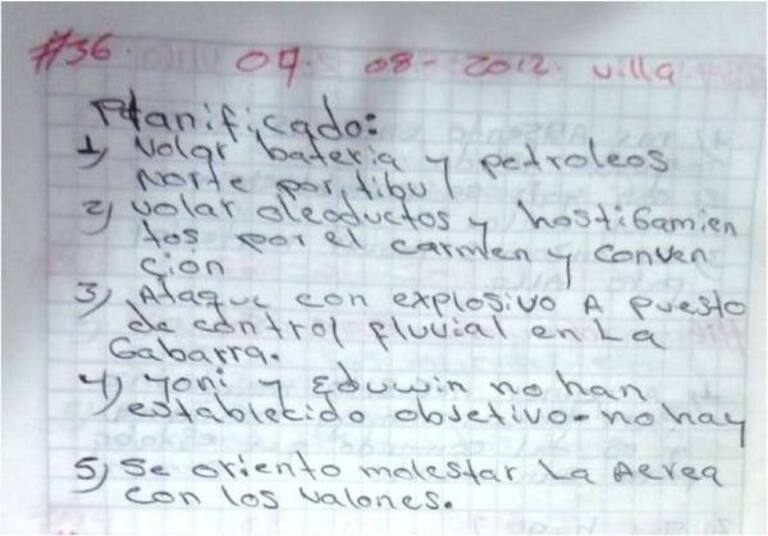 #36. 09. 08-2012. villa
Planificado:
1) Volar bateria y petroleos
Norte por, tibu
2) volar oleoductos y hostiGamien
tos por el carmen y conven
ción
3) Ataque con explosivo A puesto
de control fluvial en La
Gabarra.
4) yoni y Eduwin no han
establecido objetivo - no hay
5) Se oriento molestar La Aerea
con los valones.